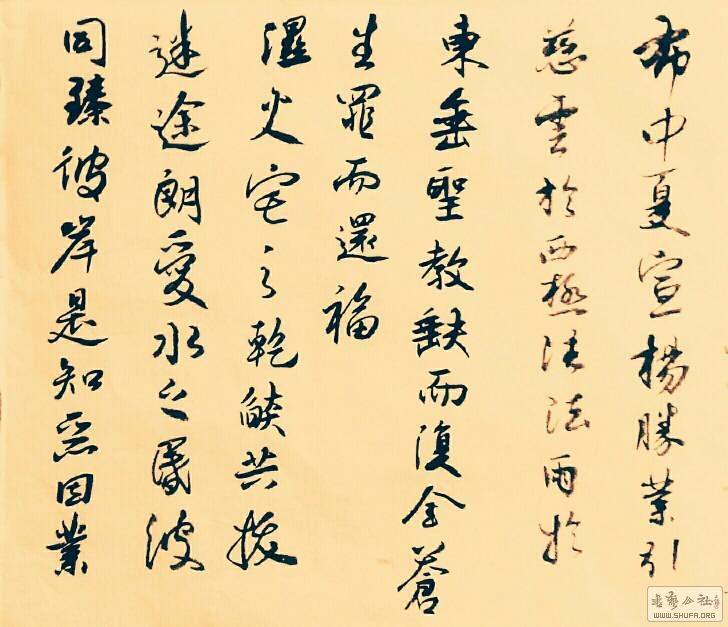 布中夏宣楊勝業引
慈雲於西極注法雨於
東垂聖教缺而復全蒼
生罪而還福
濕火宅之乾燄共拔
迷途朗愛水之昏波
同臻彼岸是知惡因業
WWW.SHUFA.ORG